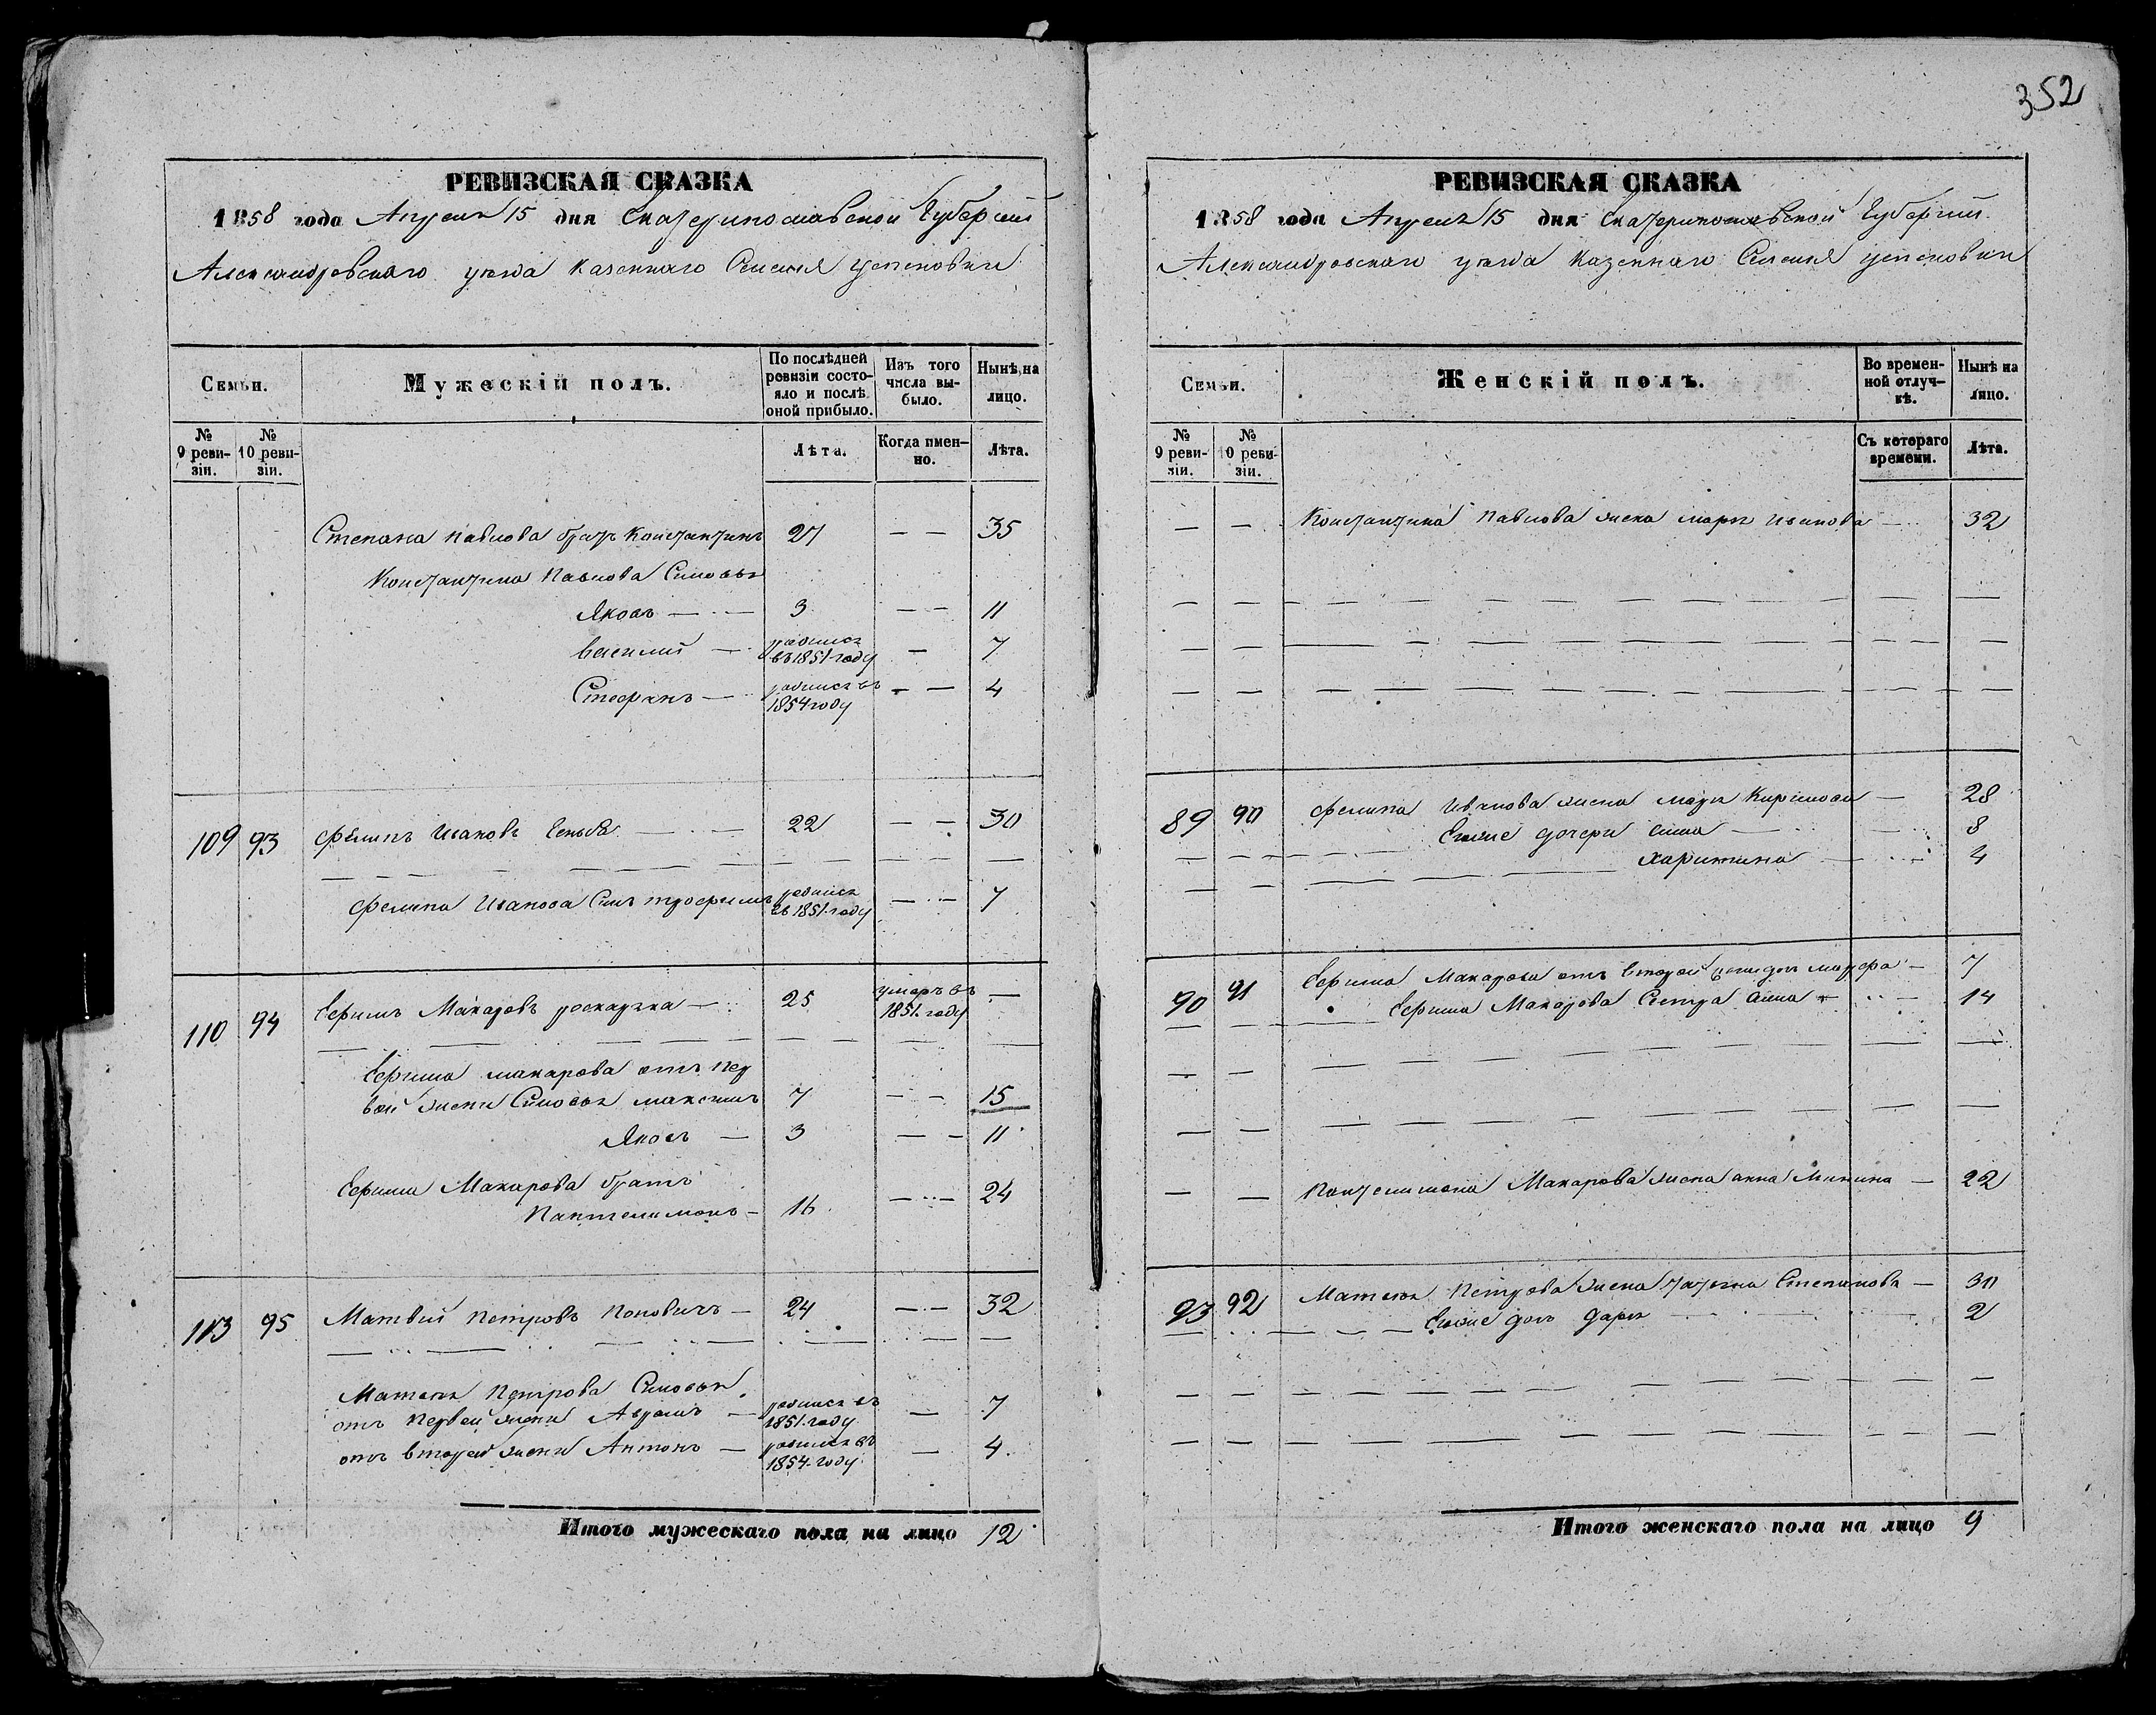 352
РЕВИЗСКАЯ СКАЗКА
1858 года Апреля 15 дня Екатеринославской Губернии
Александровскаго уезда Казеннаго Селения Успеновки
Семьи.
Мужескій полъ.
По послѣдней ревизіи состояло и послѣ оной прибыло.
Изъ того числа выбыло.
Нынѣ на лицо.
№ 9 ревизіи.
№ 10 ревизіи.
Лѣта.
Когда имен-но.
Лѣта.
Степана Павлова братъ Константинъ 27 — — 35
Константина Павлова Сыновья
Яковъ — 3 — — 11
Василий — родился въ 1851 году — 7
Стефанъ — родился въ 1854 году — — 4
109 93 Филипъ Ивановъ — 22 — — 30
Филипа Иванова Сынъ Трофимъ родился въ 1851 году — — 7
110 94 Ефимъ Макаровъ — 25 умеръ въ 1851 году —
Ефима Макарова отъ пер
вой жены Сыновья Максимъ 7 — — 15
Яковъ — 3 — — 11
Ефима Макарова братъ
Пантелимонъ — 16 — — 24
113 95 Матвий Петровъ Поповичъ — 24 — — 32
Матвея Петрова Сыновья
отъ Первой жены Авраамъ — родился въ 1851 году — 7
отъ второй жены Антонъ — родился въ 1854 году — 4
Итого мужескаго пола на лицо 12
РЕВИЗСКАЯ СКАЗКА
1858 года Апреля 15 дня Екатеринославской Губернии
Александровскаго уезда Казеннаго Селения Успеновки
Семьи.
Женскій полъ.
Во времен-ной отлуч-кѣ.
Нынѣ на лицо.
№ 9 ревизіи.
№ 10 ревизіи.
Съ котораго времени.
Лѣта.
— — Константина Павлова жена Марья Иванова — 32
89 90 Филипа Иванова жена Марья Кирилова — 28
Егоже дочери Анна — 8
Харитина — 4
90 91 Ефима Макарова отъ второй жены дочь — 7
Ефима Макарова Сестра Анна — 14
— — Пантелимона Макарова жена Анна Минина — 22
93 92 Матвея Петрова жена Татьяна Степанова — 30
Егоже дочь Дарья 2
Итого женскаго пола на лицо 9